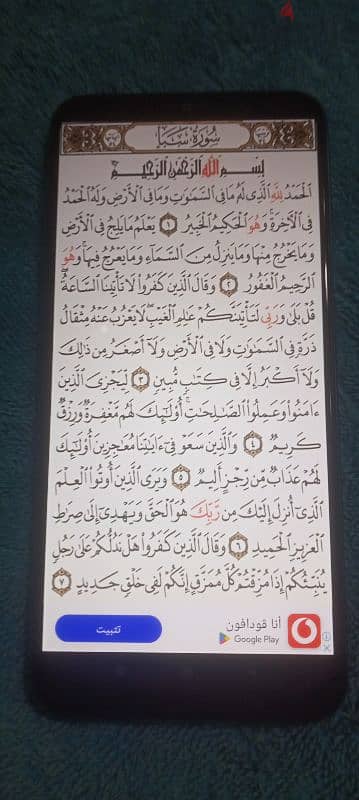 سُورَةُ سَبَإٍ
بِسْمِ اللَّهِ الرَّحْمَٰنِ الرَّحِيمِ
الْحَمْدُ لِلَّهِ الَّذِي لَهُ مَا فِي السَّمَٰوَٰتِ وَمَا فِي الْأَرْضِ وَلَهُ الْحَمْدُ
فِي الْآخِرَةِ وَهُوَ الْحَكِيمُ الْخَبِيرُ ١ يَعْلَمُ مَا يَلِجُ فِي الْأَرْضِ
وَمَا يَخْرُجُ مِنْهَا وَمَا يَنزِلُ مِنَ السَّمَآءِ وَمَا يَعْرُجُ فِيهَا وَهُوَ
الرَّحِيمُ الْغَفُورُ ٢ وَقَالَ الَّذِينَ كَفَرُوا لَا تَأْتِينَا السَّاعَةُ
قُلْ بَلَىٰ وَرَبِّي لَتَأْتِيَنَّكُمْ عَٰلِمِ الْغَيْبِ لَا يَعْزُبُ عَنْهُ مِثْقَالُ
ذَرَّةٍ فِي السَّمَٰوَٰتِ وَلَا فِي الْأَرْضِ وَلَآ أَصْغَرُ مِن ذَٰلِكَ
وَلَآ أَكْبَرُ إِلَّا فِي كِتَٰبٍ مُّبِينٍ ٣ لِّيَجْزِيَ الَّذِينَ
ءَامَنُوا وَعَمِلُوا الصَّٰلِحَٰتِ أُولَٰٓئِكَ لَهُم مَّغْفِرَةٌ وَرِزْقٌ
كَرِيمٌ ٤ وَالَّذِينَ سَعَوْ فِيٓ ءَايَٰتِنَا مُعَٰجِزِينَ أُولَٰٓئِكَ
لَهُمْ عَذَابٌ مِّن رِّجْزٍ أَلِيمٌ ٥ وَيَرَى الَّذِينَ أُوتُوا الْعِلْمَ
الَّذِيٓ أُنزِلَ إِلَيْكَ مِن رَّبِّكَ هُوَ الْحَقَّ وَيَهْدِيٓ إِلَىٰ صِرَٰطِ
الْعَزِيزِ الْحَمِيدِ ٦ وَقَالَ الَّذِينَ كَفَرُوا هَلْ نَدُلُّكُمْ عَلَىٰ رَجُلٍ
يُنَبِّئُكُمْ إِذَا مُزِّقْتُمْ كُلَّ مُمَزَّقٍ إِنَّكُمْ لَفِي خَلْقٍ جَدِيدٍ ٧
أنا ڤودافون
Google Play
تثبيت